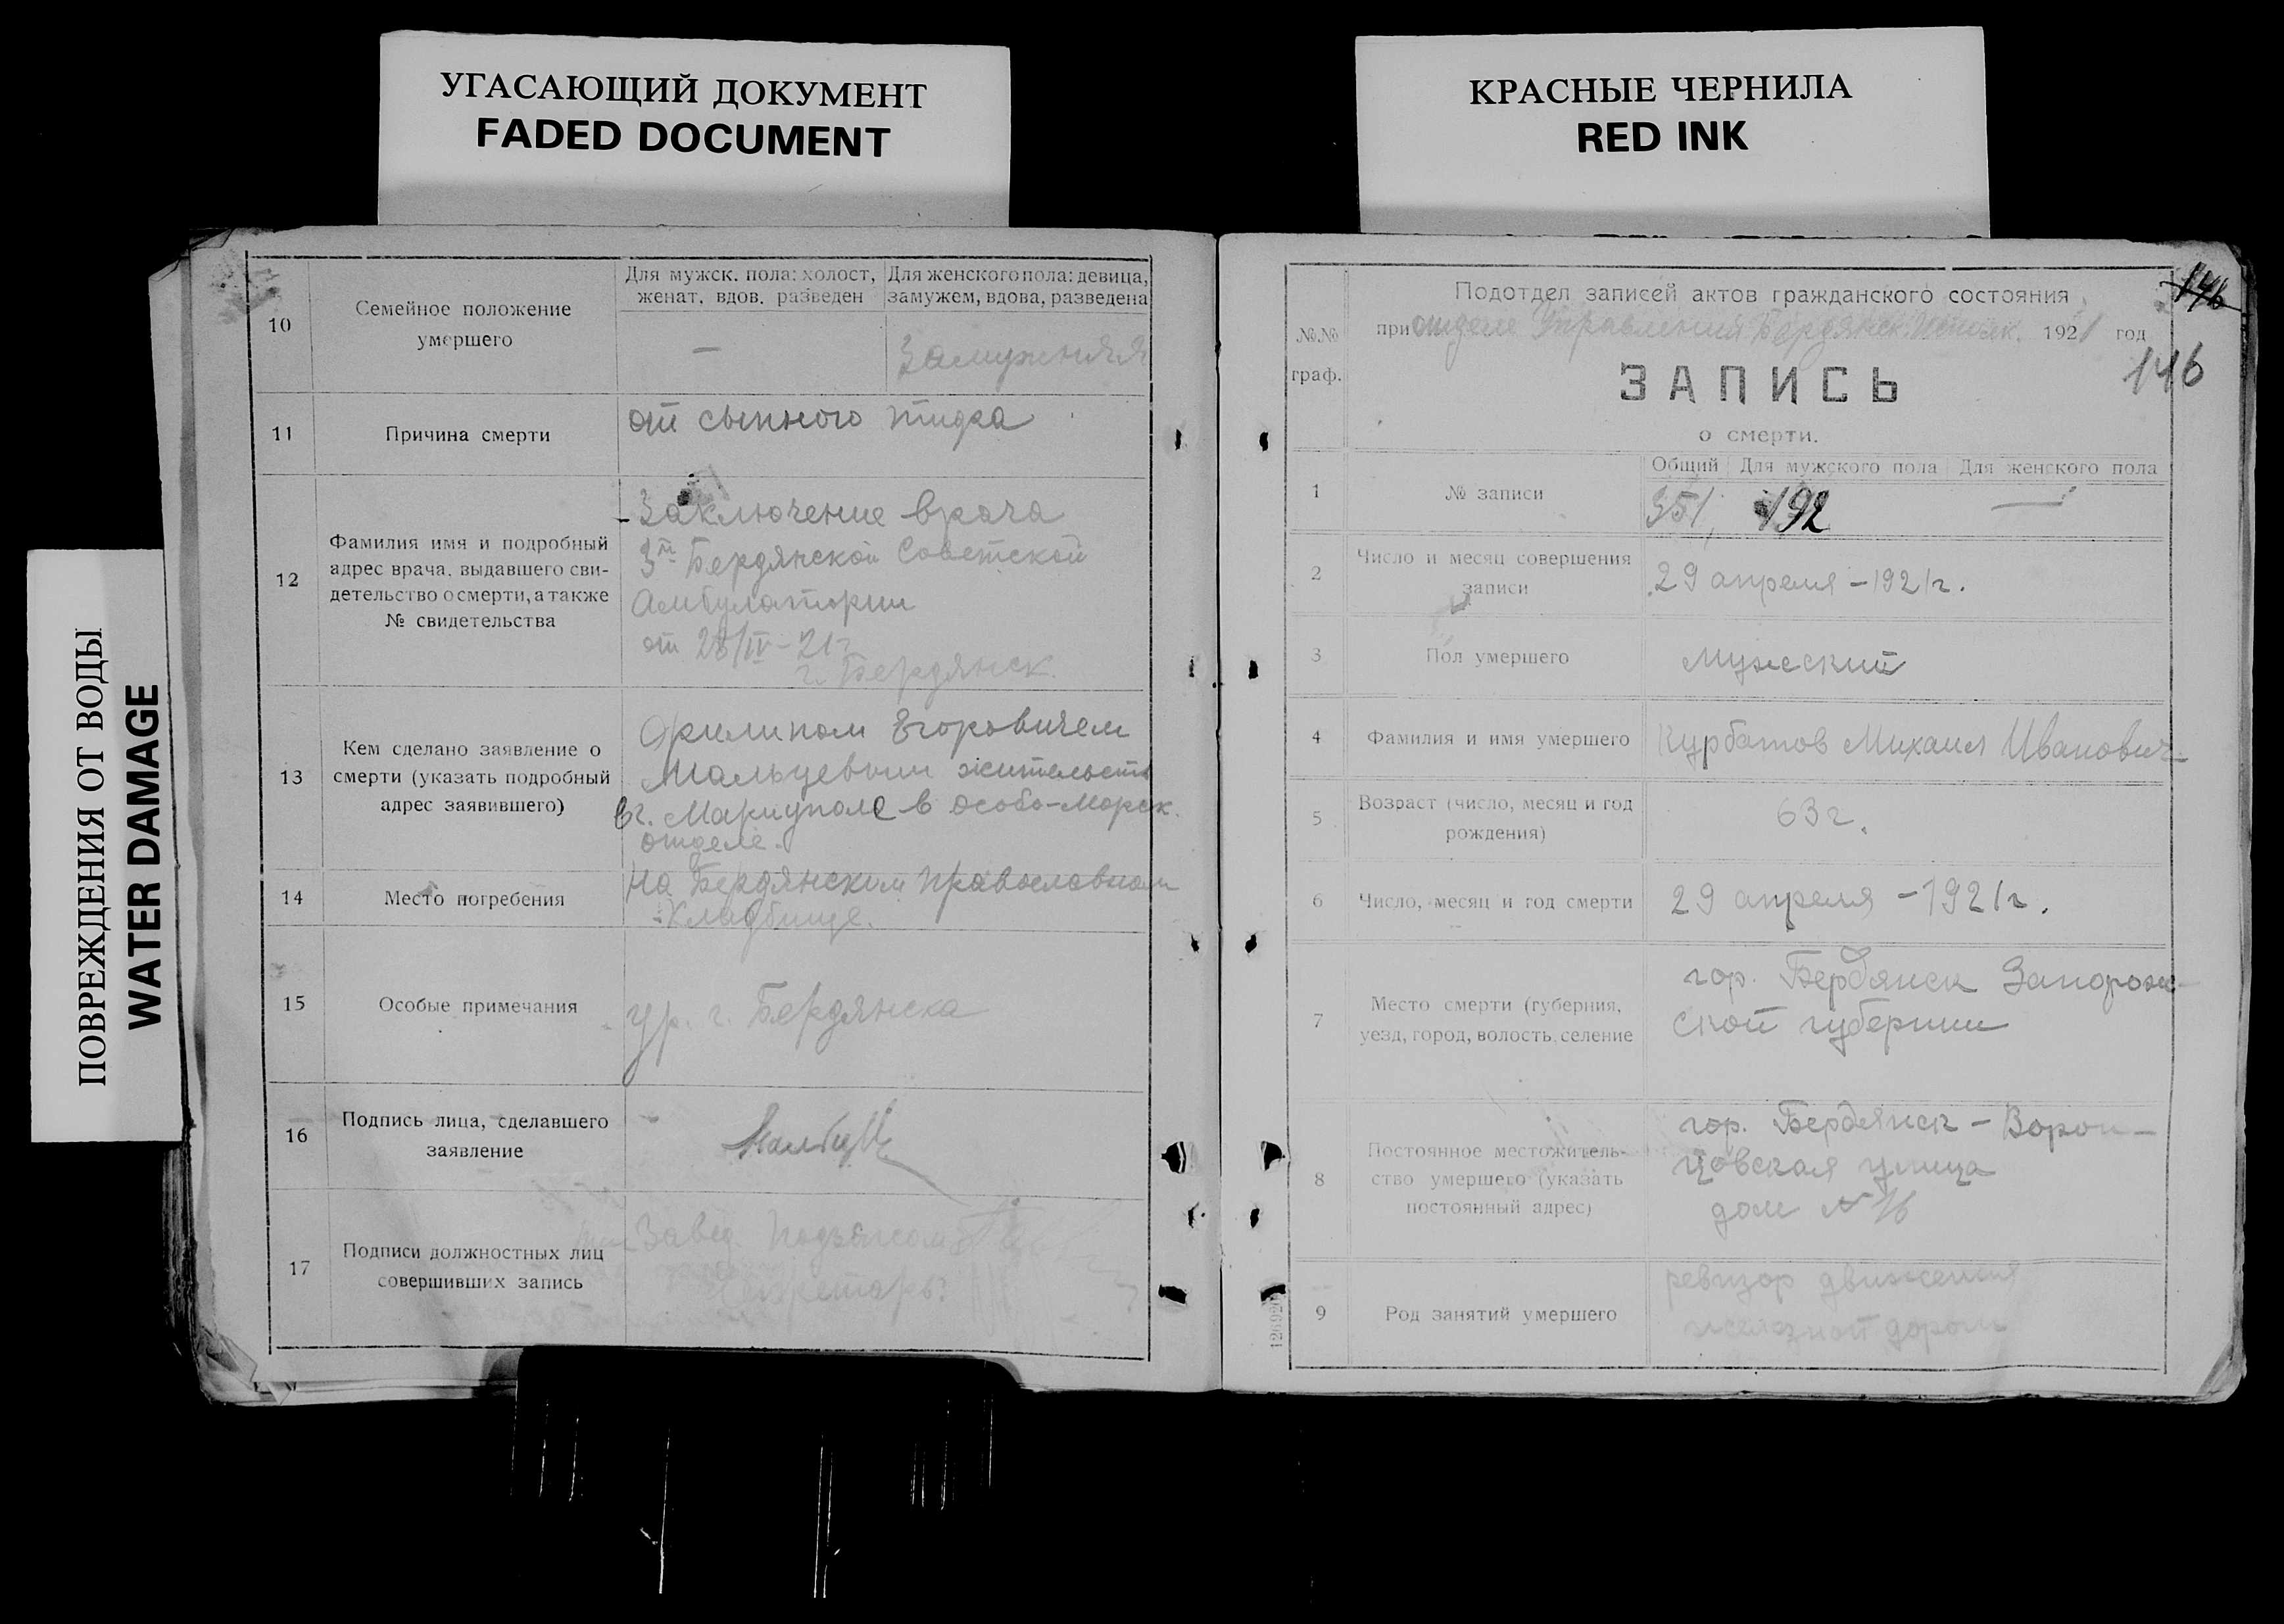 УГАСАЮЩИЙ ДОКУМЕНТ
FADED DOCUMENT
КРАСНЫЕ ЧЕРНИЛА
RED INK
ПОВРЕЖДЕНИЯ ОТ ВОДЫ
WATER DAMAGE
10
Семейное положение
умершего
Для мужск. пола: холост,
женат, вдов. разведен
Для женского пола: девица,
замужем, вдова, разведена
—
Замужняя
11
Причина смерти
от сыпного тифа
12
Фамилия имя и подробный
адрес врача, выдавшего сви-
детельство о смерти, а также
№ свидетельства
Заключение врача
3й Бердянской Советской
Амбулатории
от 28/IV-21г
г. Бердянск.
13
Кем сделано заявление о
смерти (указать подробный
адрес заявившего)
Филипом Егоровичем
Мальцевым жительств
в г. Мариуполе в особо-Морск.
отделе.
14
Место погребения
На Бердянском православном
кладбище.
15
Особые примечания
ур. г. Бердянска
16
Подпись лица, сделавшего
заявление
17
Подписи должностных лиц
совершивших запись
Завед
Секретарь:
№№
граф.
Подотдел записей актов гражданского состояния
при отделе Управления Бердянск. Исполк. 1921 год
146
146
ЗАПИСЬ
о смерти.
1
№ записи
Общий
Для мужского пола
Для женского пола
351
192
—
2
Число и месяц совершения
записи
29 апреля - 1921г.
3
Пол умершего
Мужеский
4
Фамилия и имя умершего
Курбатов Михаил Иванович
5
Возраст (число, месяц и год
рождения)
63г.
6
Число, месяц и год смерти
29 апреля - 1921г.
7
Место смерти (губерния,
уезд, город, волость, селение
гор. Бердянск Запорож-
ской губернии
8
Постоянное местожитель-
ство умершего (указать
постоянный адрес)
гор. Бердянск - Ворон-
цовская улица
дом №
9
Род занятий умершего
ревизор движения
железной дороги